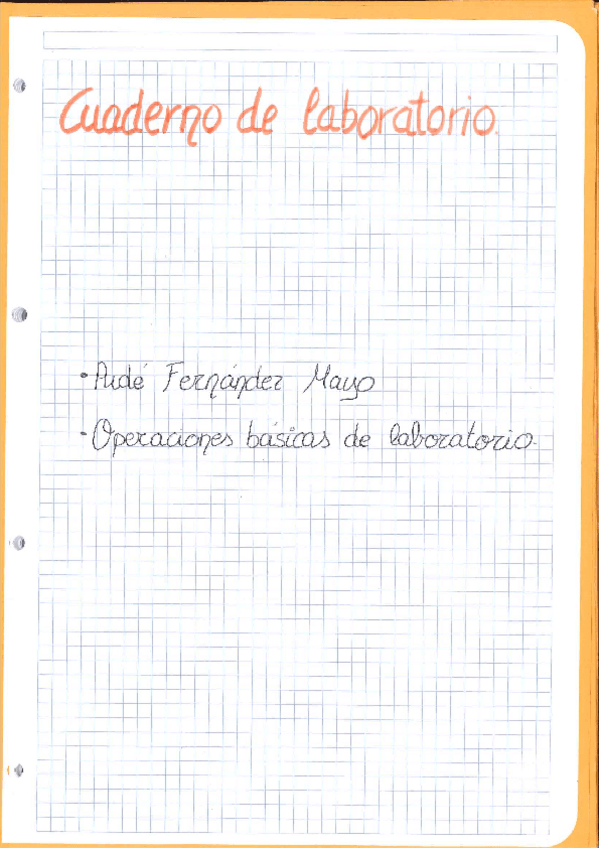 Cuaderno de laboratorio.
• Aidé Fernández Mayo
• Operaciones básicas de laboratorio.